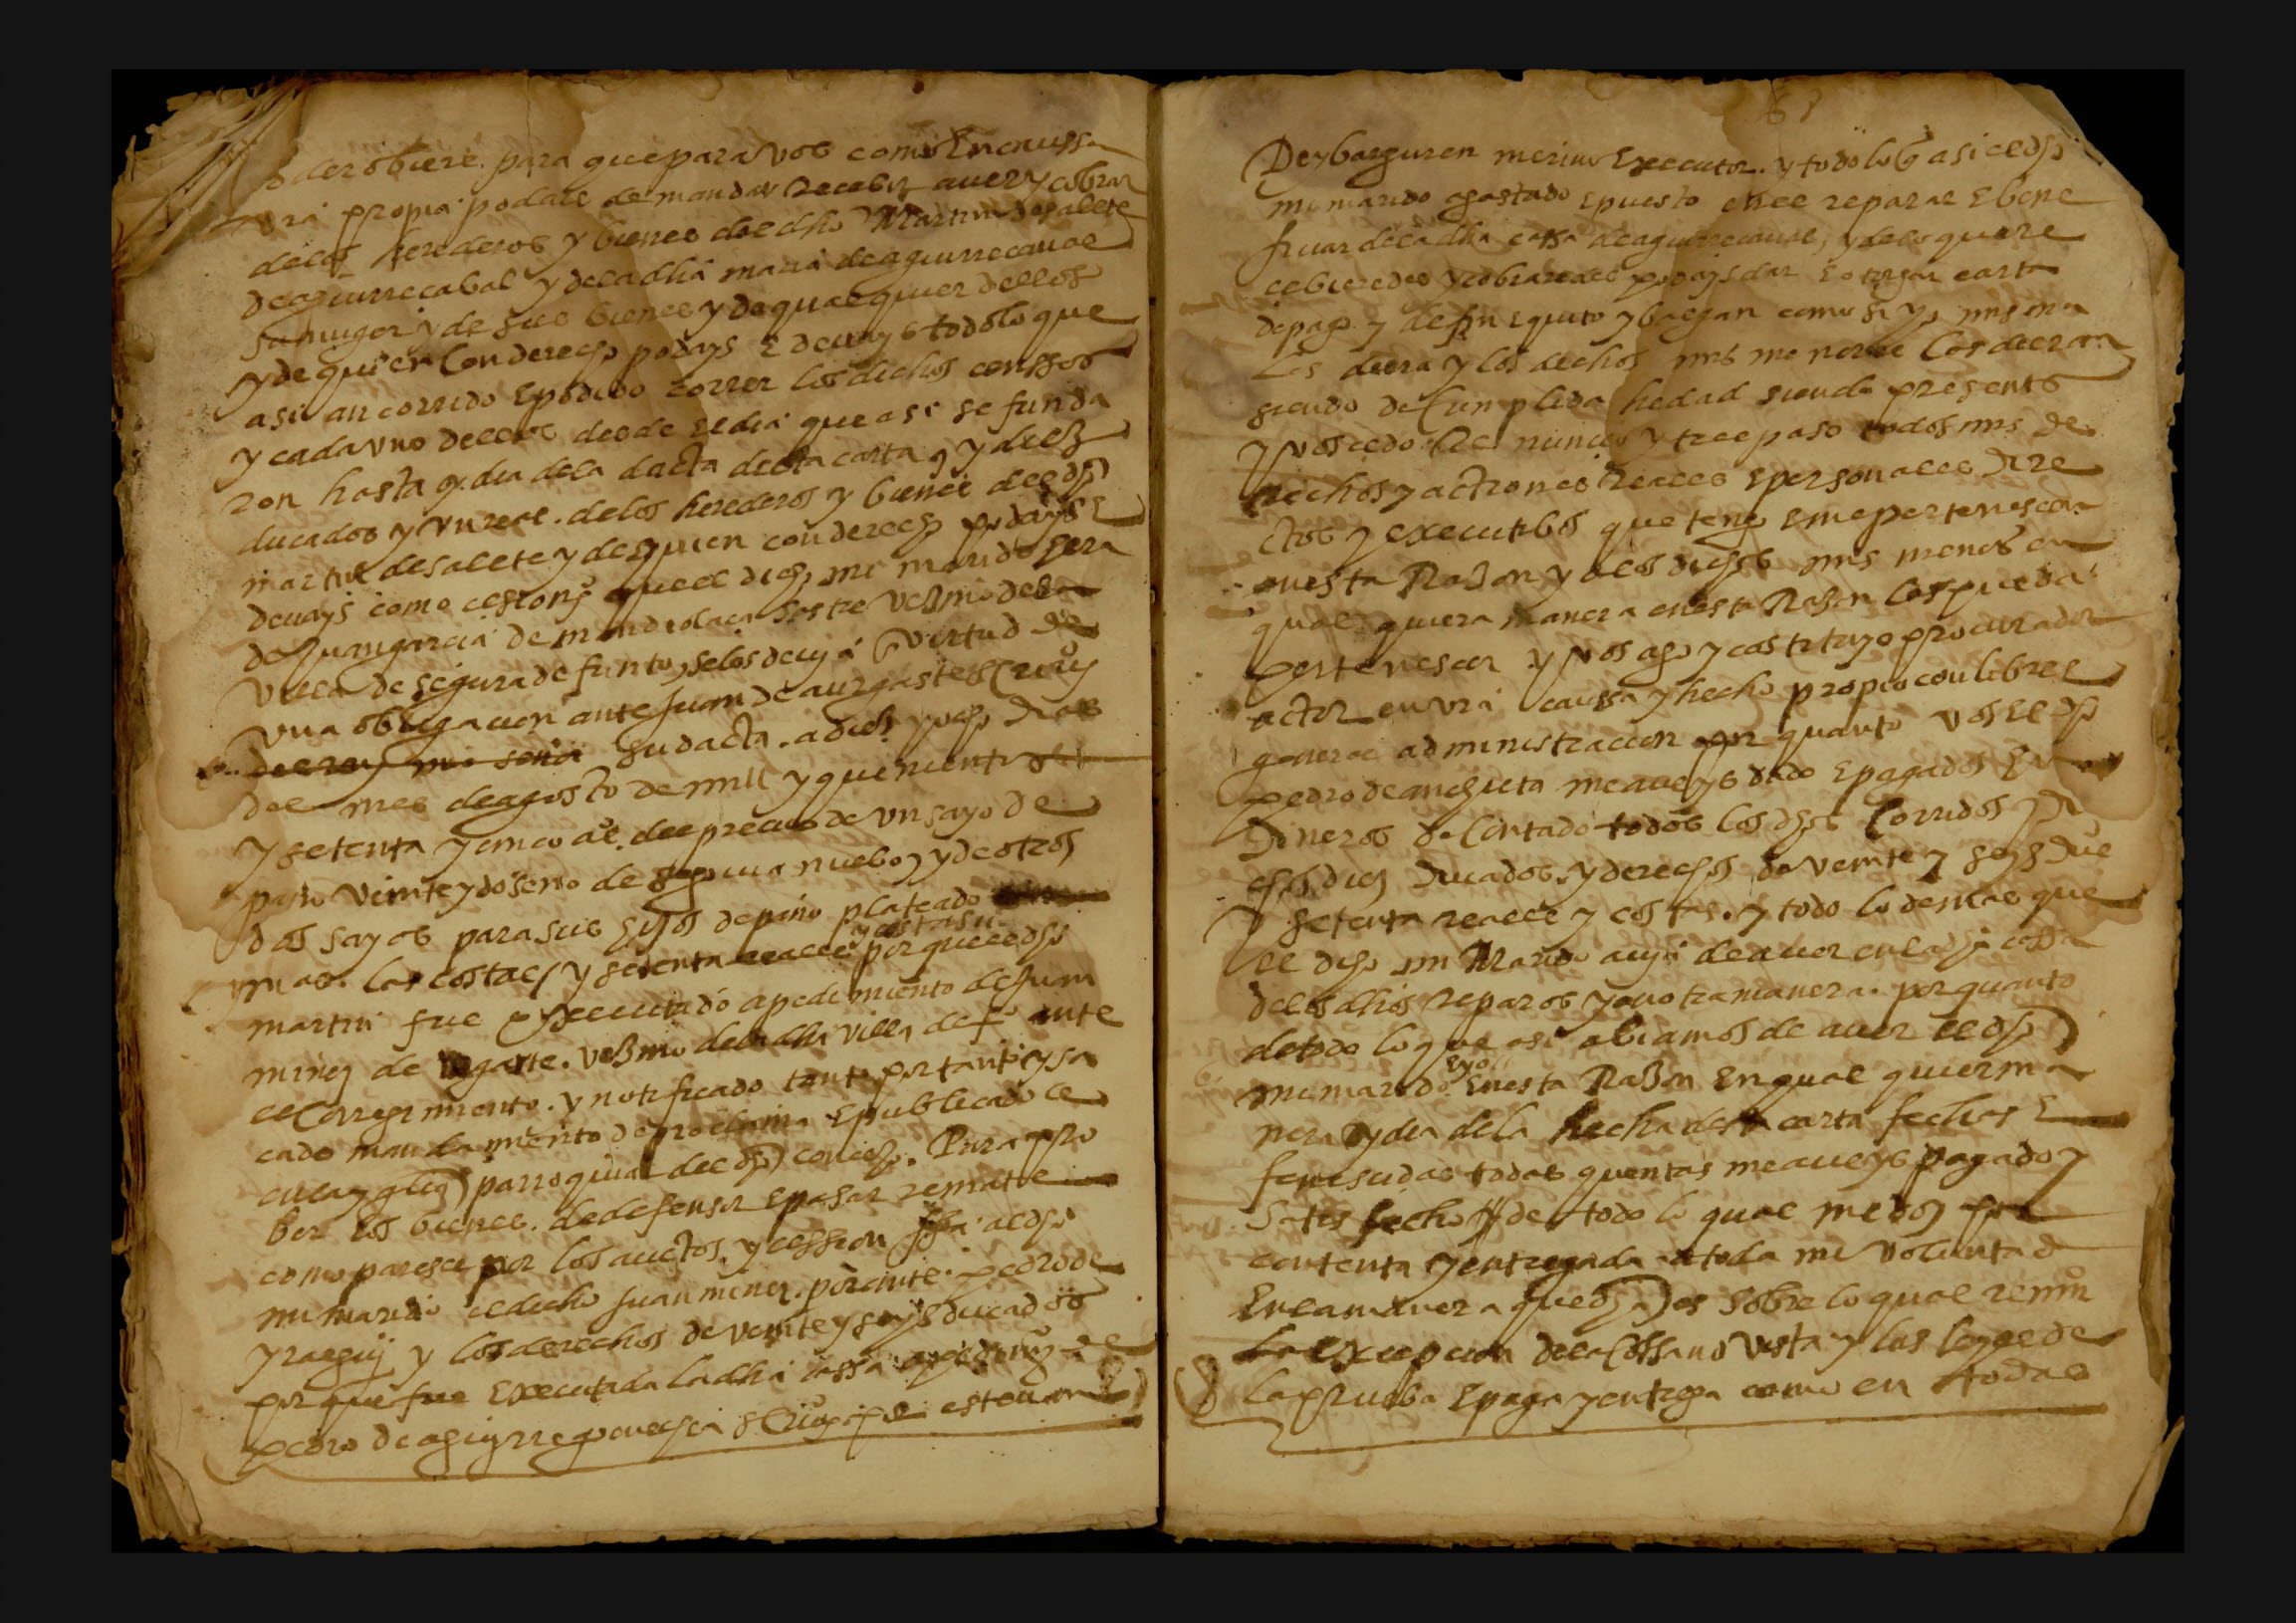 poder obiere para que para vos como en caussa
vrã propia podaes demandar recebir aver y cobrar
de los herederos y bienes del dho Martin de salete
de aguirre cabal y de la dha maria de aguirre caual
su muger y de sus bienes y de qualquier dellos
y de quien con derecho podays e devays todo lo que
asi an corrido e podido correr los dichos censsos
y cada vno dellos desde el dia que asi se funda
ron hasta oy dia de la dacta desta carta y diez
ducados y vn real de los herederos y bienes del dho
martin de salete y de quien con derecho podays e
devays como cesionº que el dicho mi marido hera
de Juan garcia de mendiolaça sastre vezino de la
villa de segura defunto, se los devia por virtud de
vna obligacion ante Juan de aurgaste scriuº
del rey mi señor su dacta a diez y ocho dias
del mes de agosto de mill y quinientos
y setenta y cinco aºs del precio de vn sayo de
paño veinte y doseno de segouia nuebo, y de otros
dos sayos para sus hijos de paño plateado
mas las costas, y setenta reales y costas porque el dho
martin fue executado a pedimiento de Juan
minez de vgarte vezino de la dha villa de sª ante
el Corregimiento y notificado tanto por tanto y sa
cado mandamiento de proclama e publicado el
en la yglia parroquial del dho concejo. Para pro
ber los bienes de defensor e pasar remate
como paresce por los auctos y cession fha al dho
mi marido el dicho Juan minez por ante pedro de
yraegui y los derechos de veinte y seys ducados
por que fue executada la dha cassa a pedimiº de
pedro de aguirre goenechea scriuº por estevan
61
De ybarguren merino executor y todo lo q̃ asi el dho
mi marido a gastado e puesto en el reparar e bene
ficiar de la dha cassa de aguirrecaual, y de lo que re
cebieredes y cobraredes podays dar e otorgar carta
de pago y de fin e quito y balgan como si yo misma
las diera y los dichos mis menores las dieran
siendo de cumplida hedad siendo presente
y vos cedo Renuncio y trespaso todos mis de
rechos y actiones Reales e personales dire
ctos y executibos que tengo e me pertenescen
en esta Razon y a los dichos mis menores en
qualquiera manera en esta Razon les pueda
pertenescer y vos ago y costituyo procurador
actor en vrã caussa y hecho propio con libre e
general administracion por quanto vos el dho
pedro de anchieta me aveys dado e pagados en
dineros de Contado todos los dhos Corridos y
esos diez ducados y derechos de veinte y seys duºs
y setenta reales y costas. y todo lo demas que
el dho mi Marido avia de aver en la dha cassa
de los dhos reparos y en otra manera. por quanto
de todo lo que asi abiamos de aver el dho
mi marido e yo en esta Razon en qualquier ma
nera oy dia de la hecha desta carta fechas e
fenescidas todas quentas me aveys pagado y
Satisfecho y de todo lo qual me doy por
contenta y entregada a toda mi voluntad
En la manera que dha es sobre lo qual renunº
la excepcion de la Cossa no vista y las leyes de
la prueba e paga y entrega como en todas